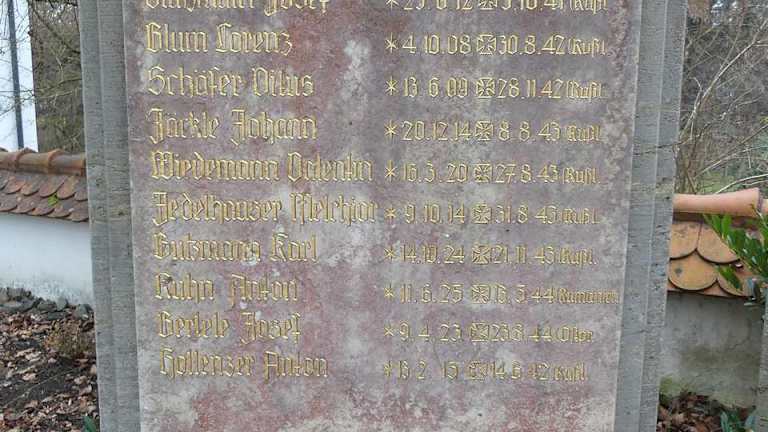 Josef * 25.6.12 ✠ 5.10.41 Rußl.
Blum Lorenz * 4.10.08 ✠ 30.8.42 Rußl.
Schäfer Vitus * 13.6.09 ✠ 28.11.42 Rußl.
Jäckle Johann * 20.12.14 ✠ 8.8.43 Rußl.
Wiedemann Valentin * 16.3.20 ✠ 27.8.43 Rußl.
Jedelhauser Melchior * 9.10.14 ✠ 31.8.43 Rußl.
Gutzmann Karl * 14.10.24 ✠ 21.11.43 Rußl.
Kuhn Anton * 11.6.25 ✠ 13.5.44 Rumänien
Bertele Josef * 9.4.23 ✠ 23.8.44
Hollenzer Anton * 13.2.15 ✠ 14.6.42 Rußl.